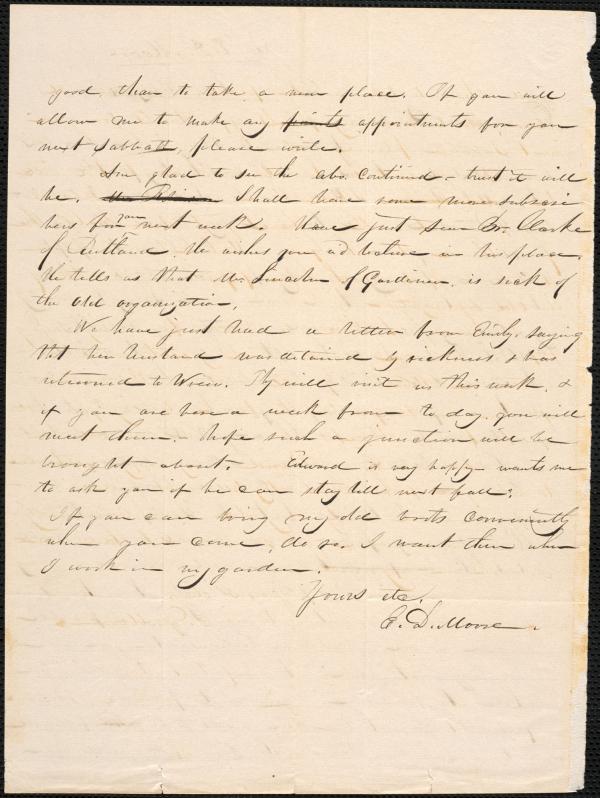 good, than to take a new place. If you will
allow me to make any points appointments for you
next Sabbath, please write.
Am glad to see the abo. continued - trust it will
be. Shall have some more subscri
bers for you next week. Have just seen Br. Clarke
of Rutland. He wishes you w'd lecture in his place.
He tells us that Mr. Lincoln of Gardiner, is sick of
the old organization.
We have just had a letter from Emily, saying
that her husband was detained by sickness & has
returned to. They will visit us this week, &
if you are here a week from to day, you will
meet them. - hope such a junction will be
brought about. Edward is very happy - wants me
to ask you if he can stay till next fall.
If you can bring my old boots conveniently
when you come, do so. I want them when
I work in my garden.
Yours etc.
E. D. Moore.